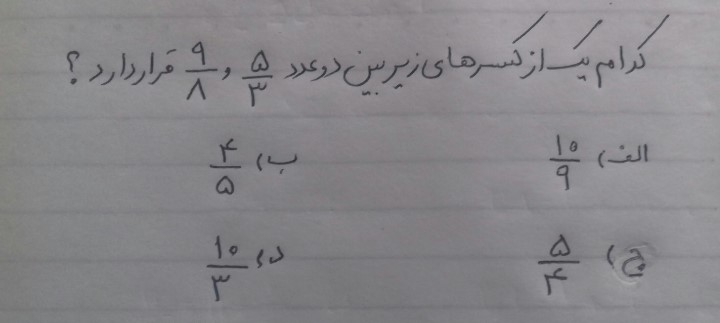 کدام یک از کسرهای زیر بین دو عدد ۵/۳ و ۹/۸ قرار دارد ؟
الف) ۱۰/۹ ب) ۴/۵
ج) ۵/۴ د) ۱۰/۳